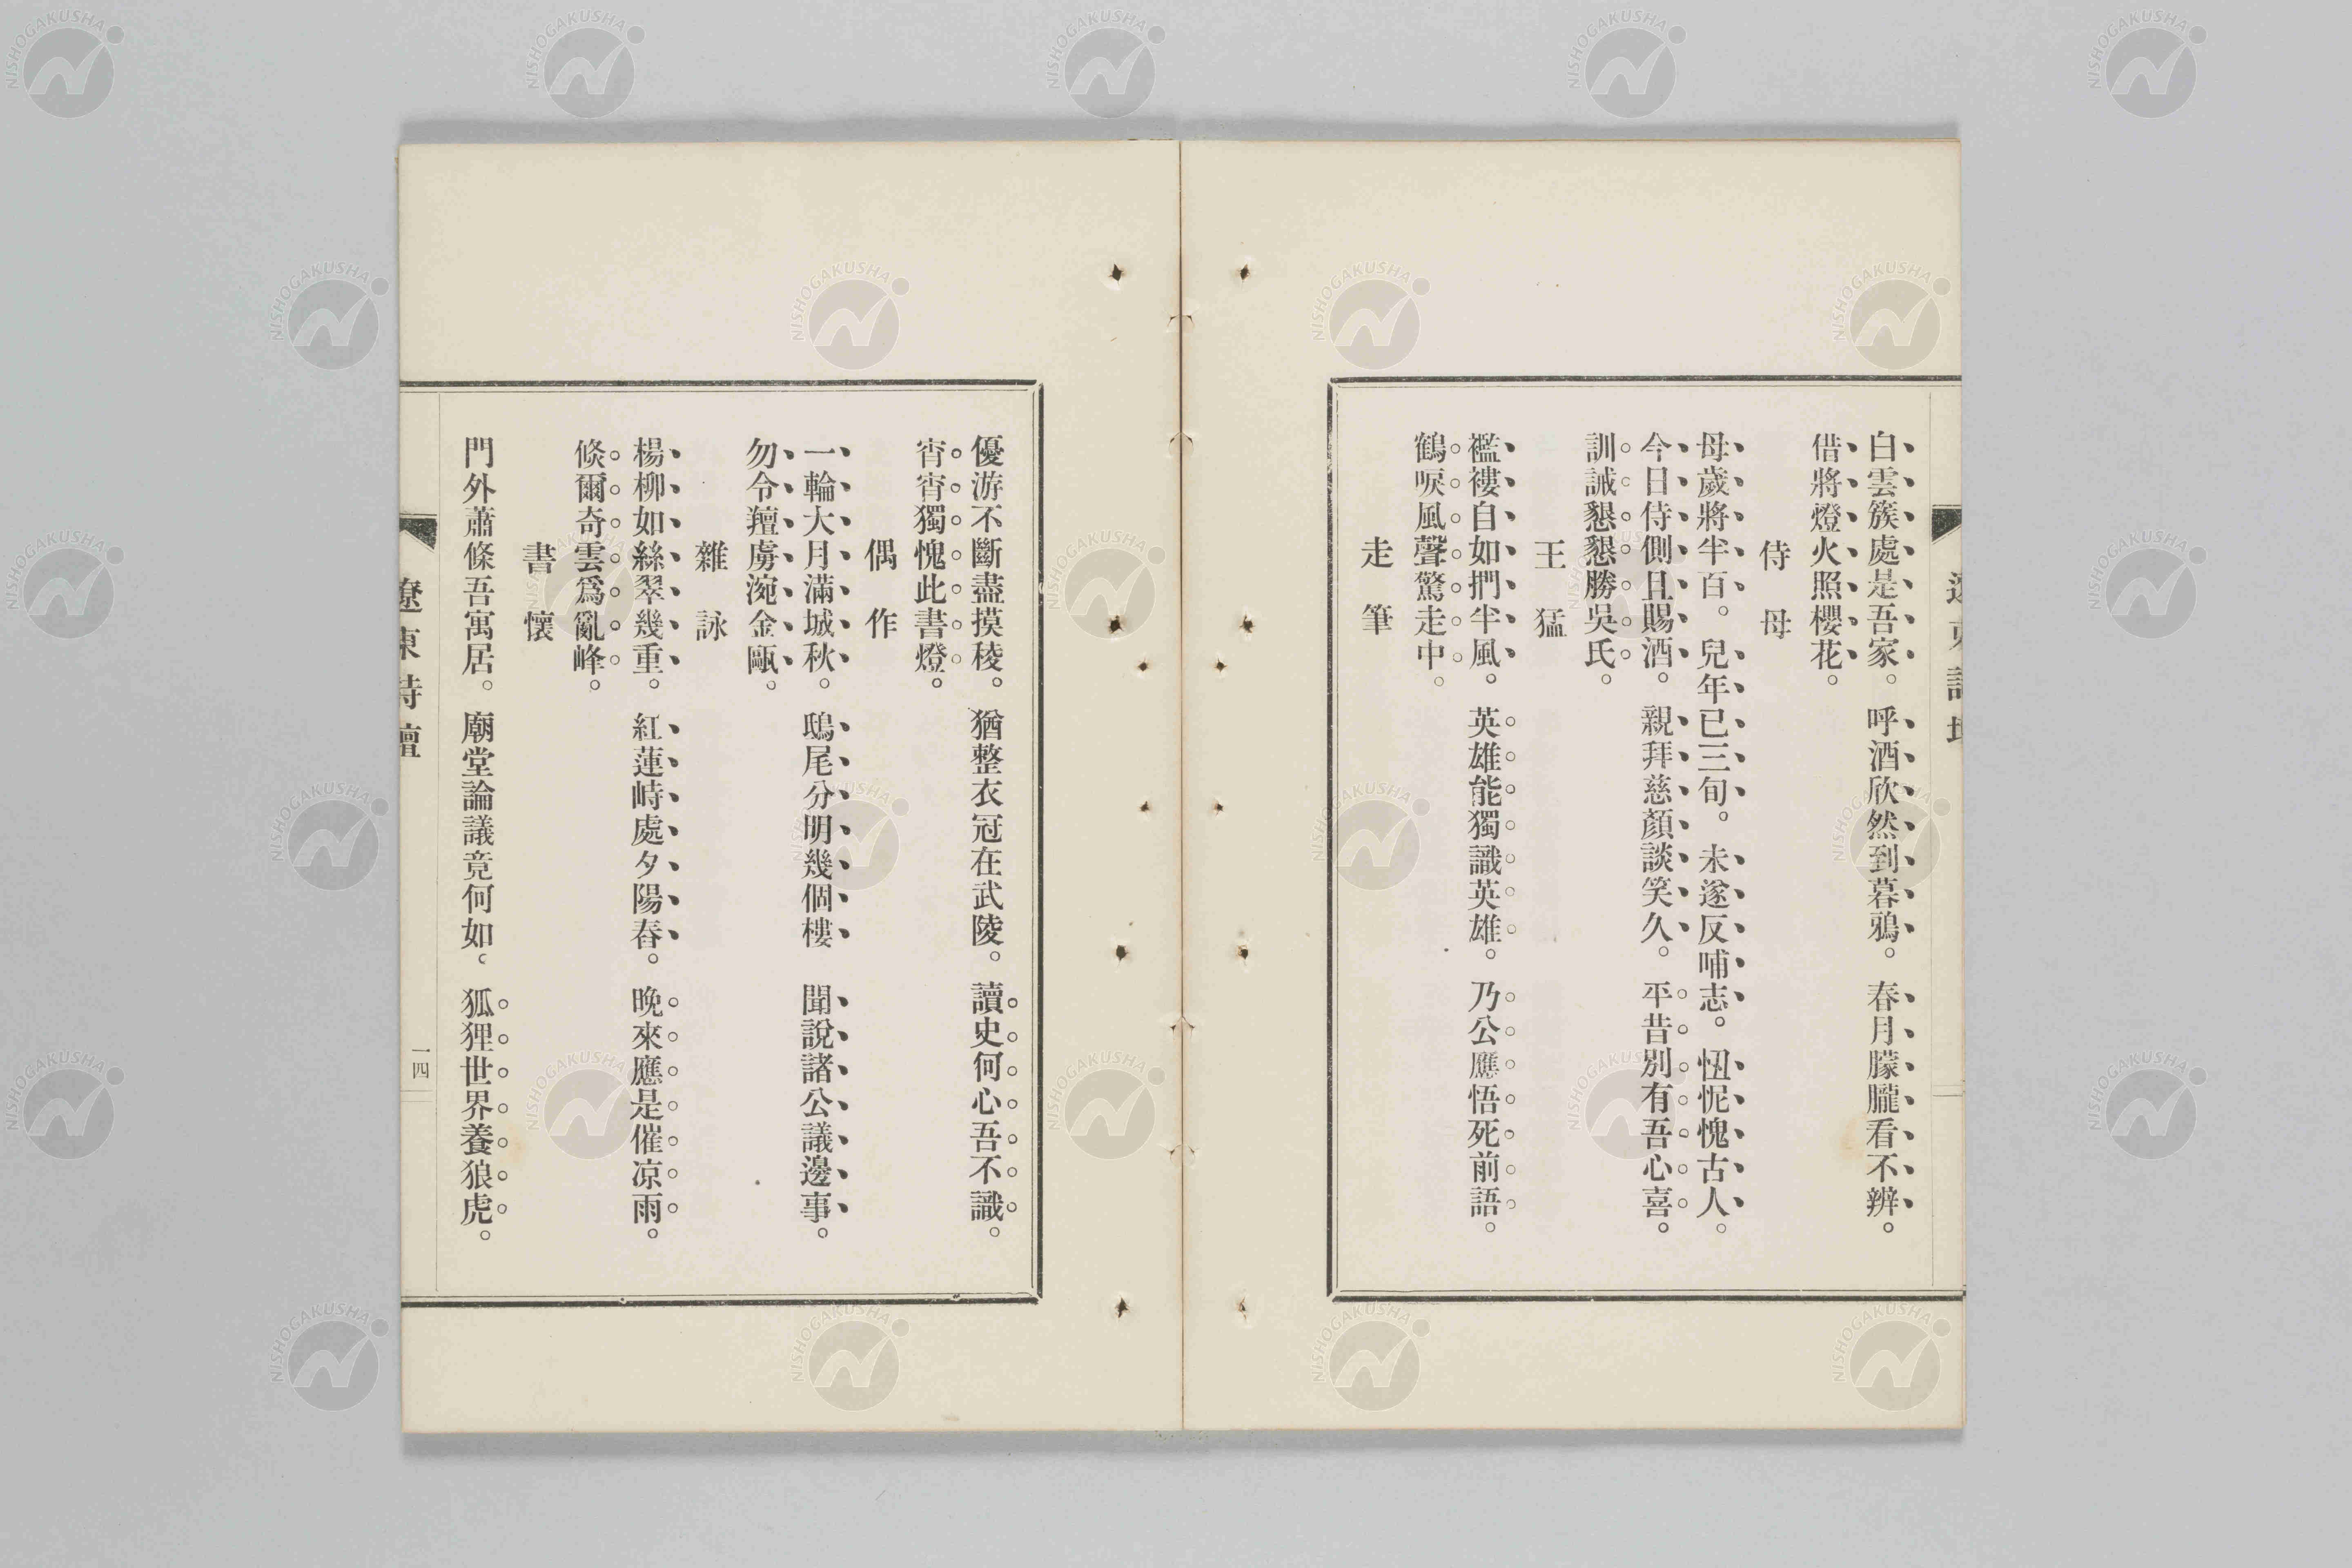 白雲簇處是吾家。呼酒欣然到暮鴉。春月朦朧看不辨。
借將燈火照櫻花。
侍母
母歲將半百。兒年已三旬。未遂反哺志。忸怩愧古人。
今日侍側且賜酒。親拜慈顏談笑久。平昔別有吾心喜。
訓誡懇懇勝吳氏。
王猛
襤褸自如捫半風。英雄能獨識英雄。乃公應悟死前語。
鶴唳風聲驚走中。
走筆
優游不斷盡摸稜。猶整衣冠在武陵。讀史何心吾不識。
宵宵獨愧此書燈。
偶作
一輪大月滿城秋。鴟尾分明幾個樓 聞說諸公議邊事。
勿令羶虜涴金甌。
雜詠
楊柳如絲翠幾重。紅蓮峙處夕陽舂。晚來應是催凉雨。
倐爾奇雲爲亂峰。
書懷
門外蕭條吾寓居。廟堂論議竟何如。狐狸世界養狼虎。
遼東詩壇
一四
NISHOGAKUSHA